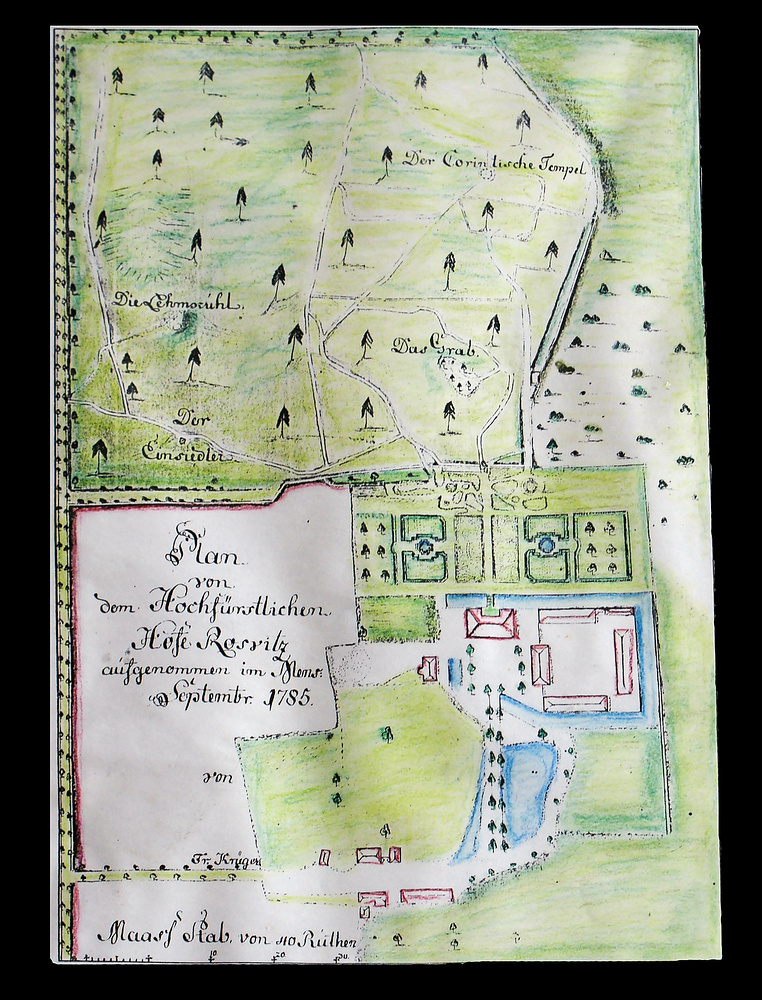 Der Corintische Tempel
Die Lehmorühl.
Das Grab.
Der
Einsiedler
Plan
von
dem Hochfürstlichen
Hofe Rosvitz
aufgenommen im Mens:
Septembr. 1785.
von
Fr. Krüger
Maass Stab. von 40 Ruthen
10 20